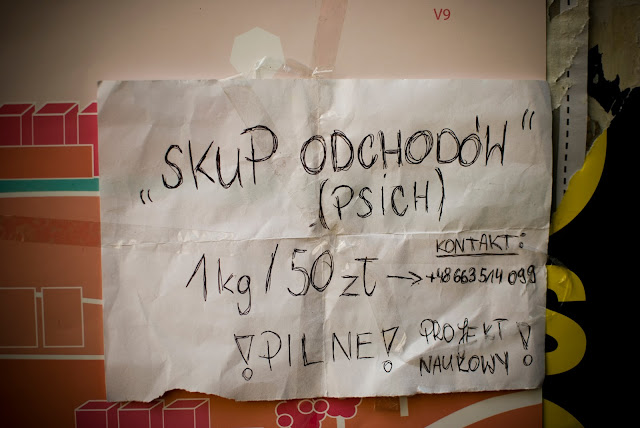 V9
„SKUP ODCHODÓW“
(PSICH)
1kg/50 zł → +48 663 514 099
KONTAKT:
!PILNE!
PROJEKT
NAUKOWY!